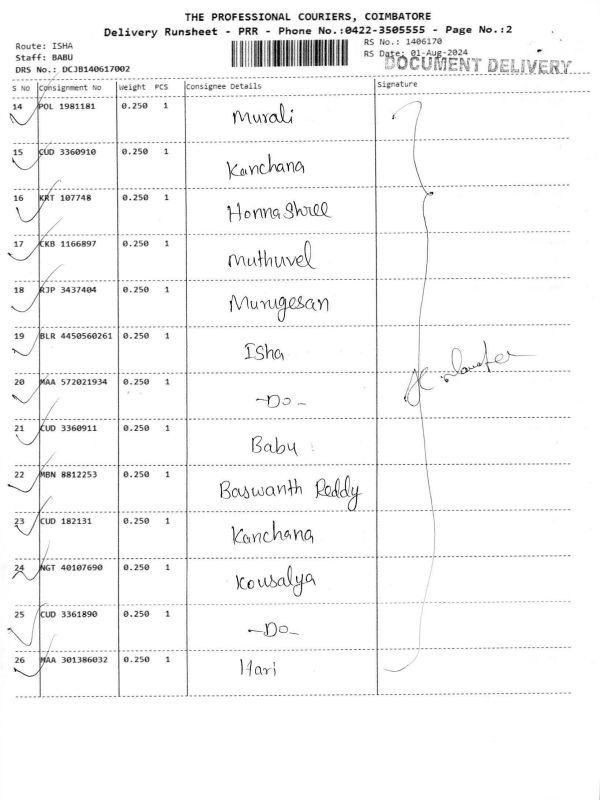 THE PROFESSIONAL COURIERS, COIMBATORE
Delivery Runsheet - PRR - Phone No.:0422-3505555 - Page No.:2
Route: ISHA
RS No.: 1406170
Staff: BABU
RS Date: 01-Aug-2024
DOCUMENT DELIVERY
DRS No.: DCJB140617002
S No Consignment No Weight PCS Consignee Details Signature
14 POL 1981181 0.250 1 Murali
15 CUD 3360910 0.250 1 Kanchana
16 KRT 107748 0.250 1 Honnashree
17 CKB 1166897 0.250 1 Muthuvel
18 RJP 3437404 0.250 1 Murugesan
19 BLR 4450560261 0.250 1 Isha
20 MAA 572021934 0.250 1 -Do-
21 CUD 3360911 0.250 1 Babu
22 MBN 8812253 0.250 1 Baswanth Reddy
23 CUD 182131 0.250 1 Kanchana
24 NGT 40107690 0.250 1 Kousalya
25 CUD 3361890 0.250 1 -Do-
26 MAA 301386032 0.250 1 Hari